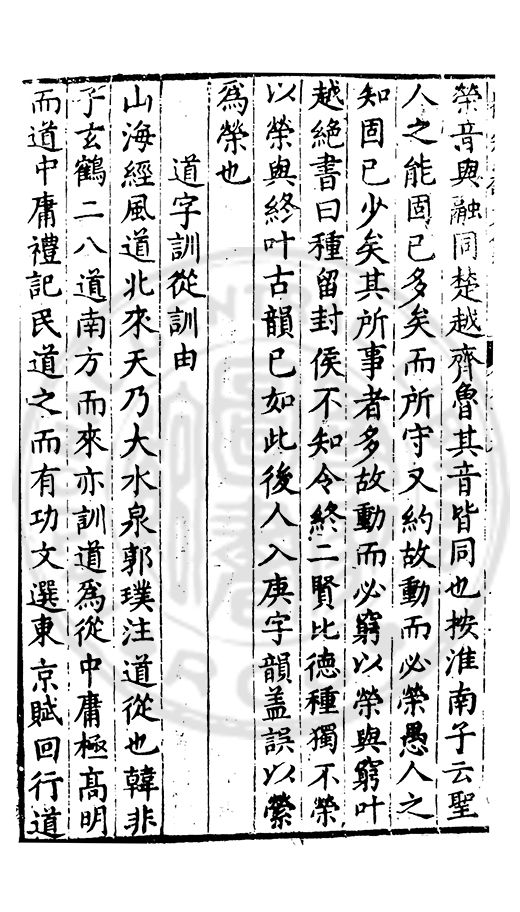 榮音與融同楚越齊魯其音皆同也按淮南子云聖
人之能固已多矣而所守又約故動而必榮愚人之
知固已少矣其所事者多故動而必窮以榮與窮叶
越絕書曰種留封侯不知令終二賢比德種獨不榮
以榮與終叶古韻已如此後人入庚字韻盖誤以縈
爲榮也
道字訓從訓由
山海經風道北來天乃大水泉郭璞注道從也韓非
子玄鶴二八道南方而來亦訓道爲從中庸極高明
而道中庸禮記民道之而有功文選東京賦回行道